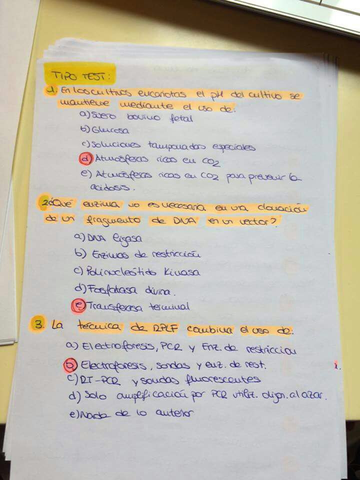 TIPO TEST:
1. En los cultivos eucariotas el pH del cultivo se
mantiene mediante el uso de:
a) Suero bovino fetal
b) Glucosa
c) Soluciones tamponadas especiales
d) Atmosferas ricas en CO2
e) Atmosferas ricas en CO2 para prevenir la
acidosis.
2. ¿Qué enzima no es necesaria en una clonación
de un fragmento de DNA en un vector?
a) DNA ligasa
b) Enzimas de restricción
c) Polinucleótido kinasa
d) Fosfatasa alcalina.
e) Transferasa terminal
3. La técnica de RPLF combina el uso de:
a) Electroforesis, PCR y Enz. de restricción
b) Electroforesis, sondas y enz. de rest.
c) RT-PCR y sondas fluorescentes
d) Solo amplificación por PCR utiliz. oligon. al azar.
e) Nada de lo anterior